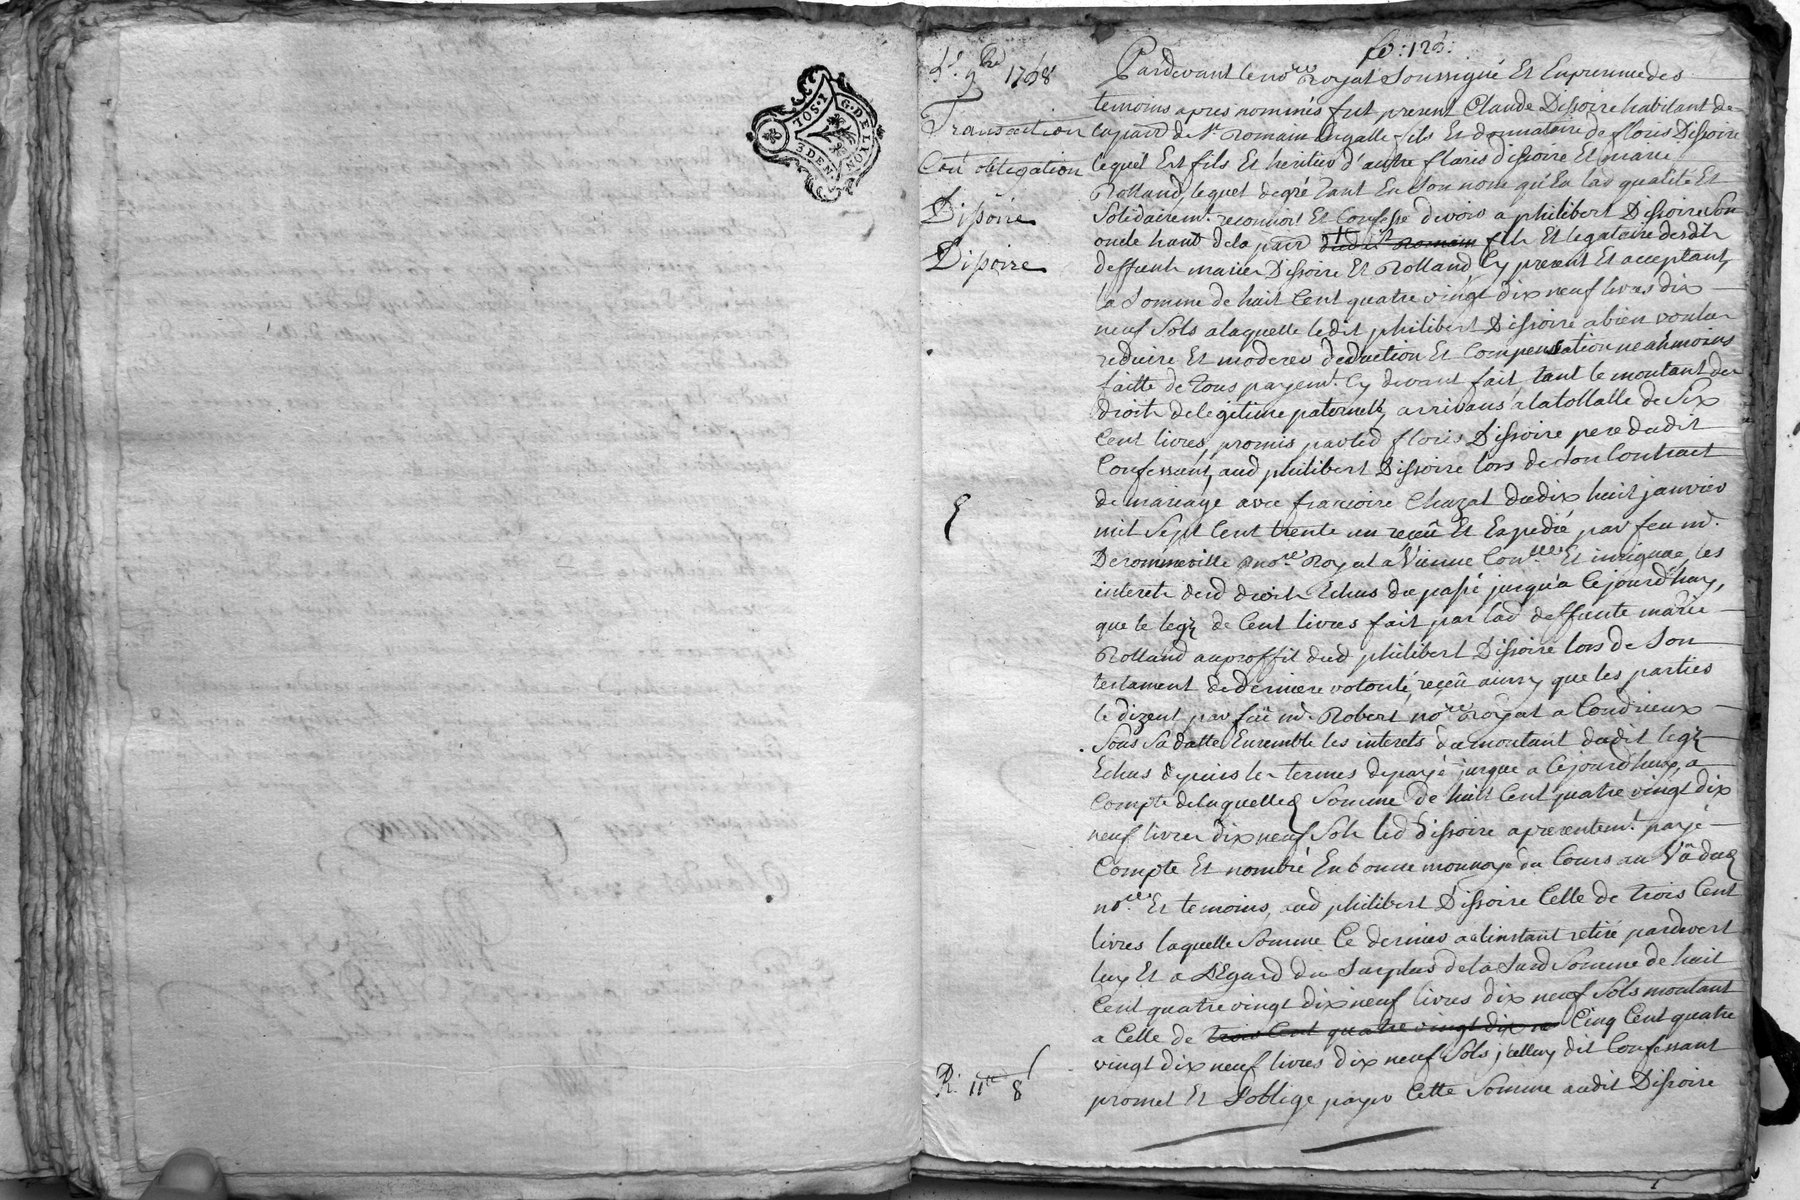 G. DE LYON
1 SOL
3 DEN.
fo: 123:
9bre 1768
Transaction
Con obligation
Dissoire
Dissoire
R: 11tt 8s
Pardevant le nore Royal Soussigné Et En presence des
temoins apres nommés fut present Claude Dissoire habitant de
la parr de st Romain en galle fils Et donnataire de floris Dissoire
lequel Est fils Et heritier d'autre floris dissoire Et marie
Rolland, lequel de gré tant En son nom qu'En lad qualité Et
Solidairemt. reconnoit Et Confesse devoir a philibert Dissoire son
oncle habt de la parr dudit st Romain fils Et legataire desdts
deffunts mariés Dissoire Et Rolland Cy present Et acceptant,
la Somme de huit Cent quatre vingt dix neuf livres dix
neuf Sols a laquelle ledit philibert Dissoire a bien voulu
reduire Et moderer deduction Et Compensation neanmoins
faitte de tous payemt. Cy devant fait, tant le montant des
droits de legitime paternelle, arrivans a la tottalle de Six
Cent livres, promis par led floris Dissoire pere dudit
Confessant, aud philibert Dissoire lors de son Contract
de mariage avec francoise Chazal du dix huit janvier
mil Sept Cent trente un reçeû Et Expedié par feu me.
Derommeville nore Royal a Vienne Et insignué, les
interets desd droits Echus du passé jusqu'a Cejourd'huy,
que le legz de Cent livres fait par lad deffunte marie
Rolland au proffit dud philibert Dissoire lors de Son
testament de derniere volonté, reçeû ainsy que les parties
le dizent par feu me. Robert nore Royal a Condrieux
Sous Sa datte, Ensemble les interets du montant dudit legz
Echus depuis les termes de payé jusque a Cejourd'huy, a
Compte de laquelle Somme de huit Cent quatre vingt dix
neuf livres dix neuf Sols led Dissoire a presentemt. payé
Compte Et nombré En bonne monnoye du Cours au Vû dud
nore. Et temoins, aud philibert Dissoire Celle de trois Cent
livres laquelle Somme Ce dernier a a l'instant retiré pardevert
luy Et a L'Egard du Surplus de la Susd Somme de huit
Cent quatre vingt dix neuf livres dix neuf Sols montant
a Celle de trois Cent quatre vingt dix ne Cinq Cent quatre
vingt dix neuf livres dix neuf Sols jcelluy dit Confessant
promet Et S'oblige payer Cette Somme audit Dissoire